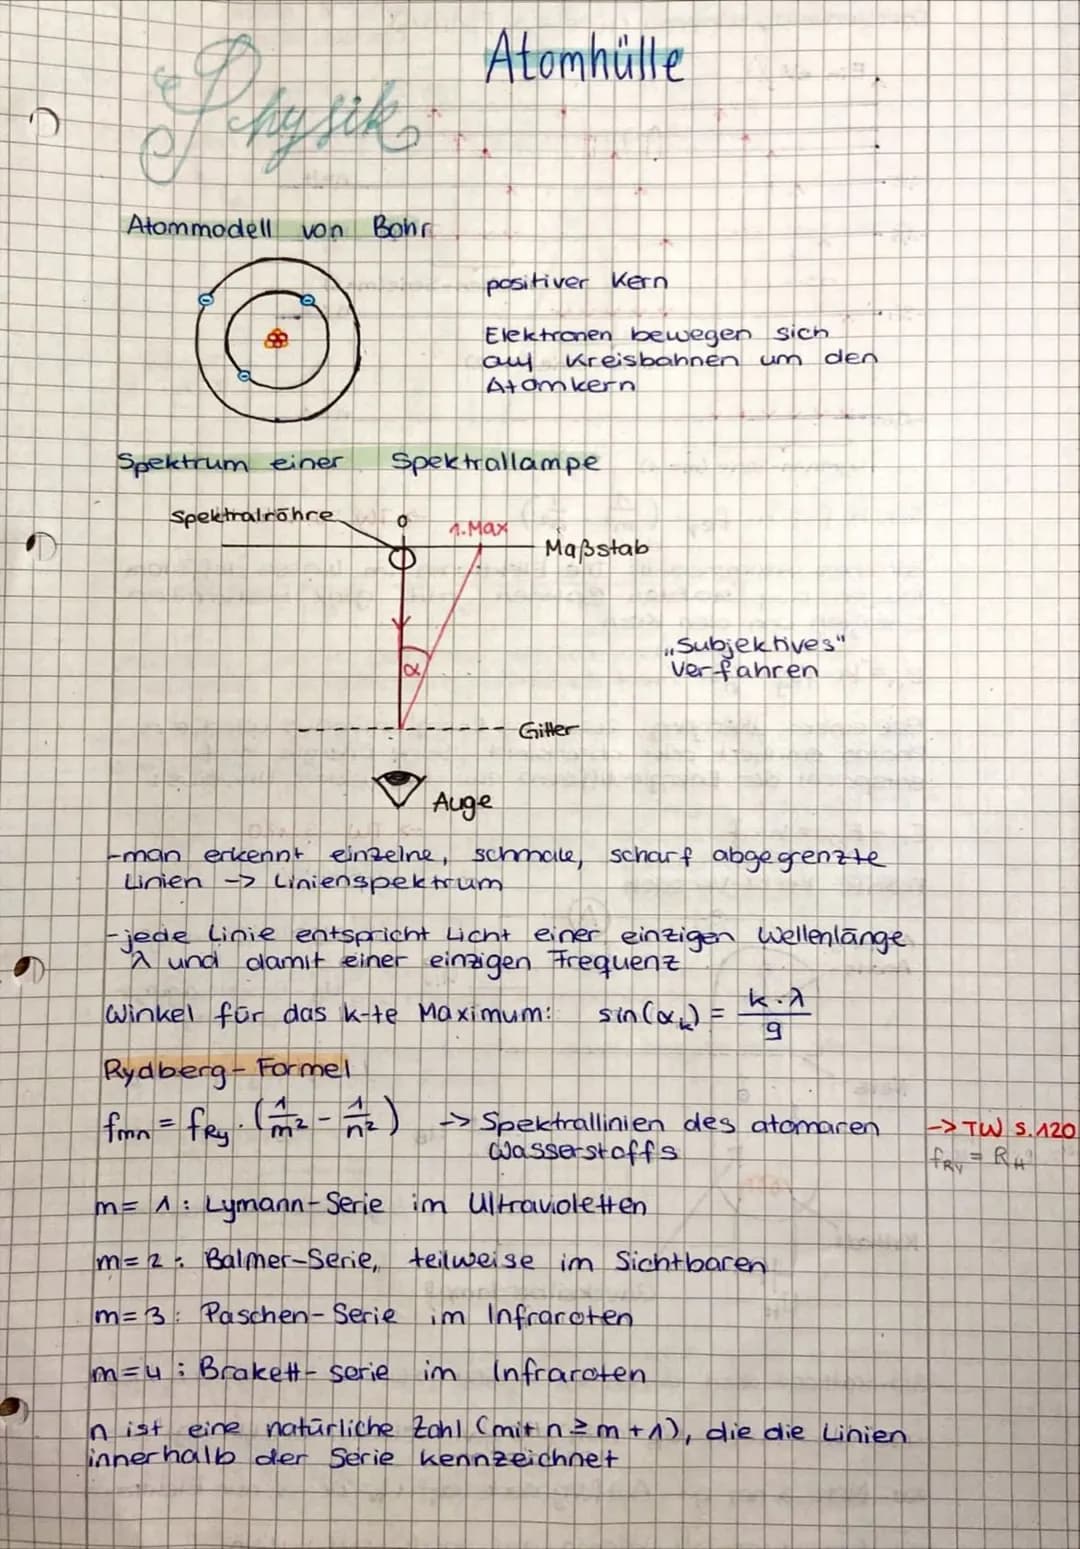 Physik
Atomhülle
Atommodell von Bohr
positiver Kern
Elektronen bewegen sich
auf Kreisbahnen um den
Atomkern
Spektrum einer Spektrallampe
Spektralröhre
0
1.Max
Maßstab
α
„Subjektives"
Verfahren
Gitter
Auge
-man erkennt einzelne, schmale, scharf abgegrenzte
Linien -> Linienspektrum
-jede Linie entspricht Licht einer einzigen Wellenlänge
λ und damit einer einzigen Frequenz
Winkel für das k-te Maximum: sin(αₖ) = k·λ/g
Rydberg-Formel
fmn = fRy · (1/m² - 1/n²) -> Spektrallinien des atomaren
Wasserstoffs
-> TW S.120
fRy = RH
m= 1: Lymann-Serie im Ultravioletten
m=2: Balmer-Serie, teilweise im Sichtbaren
m=3: Paschen-Serie im Infraroten
m=4: Brakett-serie im Infraroten
n ist eine natürliche Zahl (mit n≥m+1), die die Linien
innerhalb der Serie kennzeichnet